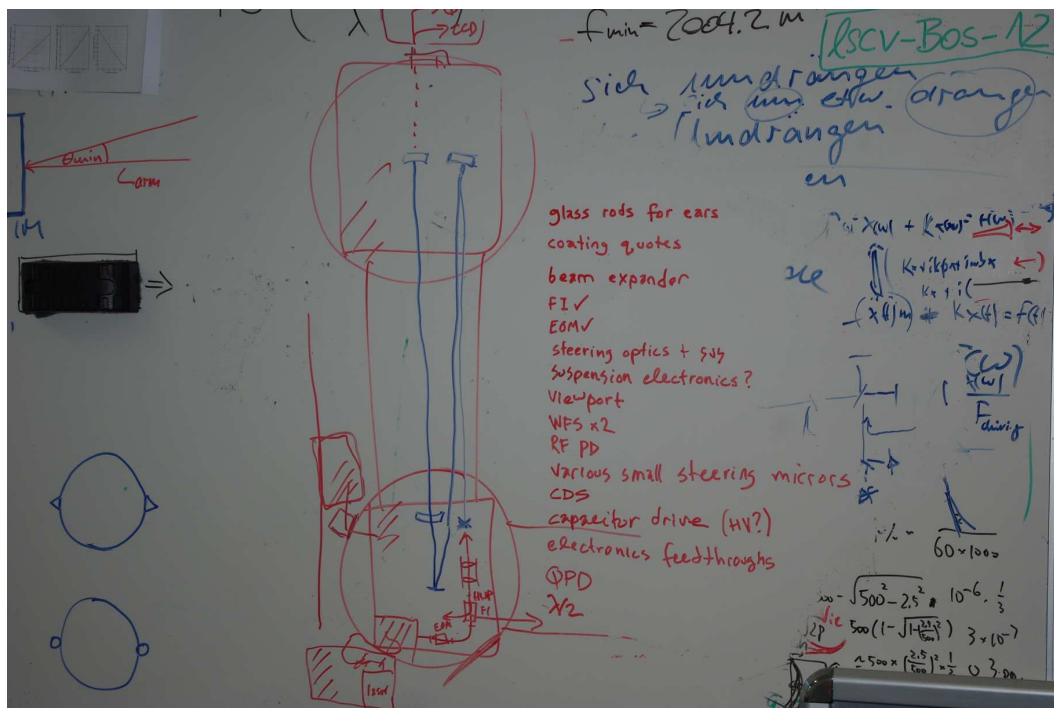 CCD
fmin = 2004.2 m
lscv-Bos-12
sich umdrängen
sich um etw. drängen
Umdrängen
en
θmin
Larm
1M
glass rods for ears
coating quotes
beam expandor
FI ✓
EOM ✓
steering optics + sus
suspension electronics?
viewport
WFS x2
RF PD
various small steering mirrors
CDS
capacitor drive (HV?)
electronics feedthroughs
QPD
λ/2
x(w)
Fdriving
60×1000
√500²-2.5² · 10⁻⁶ · 1/3
500(1-√1-(2.5/500)²) 3×10⁻⁷
≈500×(2.5/500)²×1/2
HWP
FI
EOM
laser